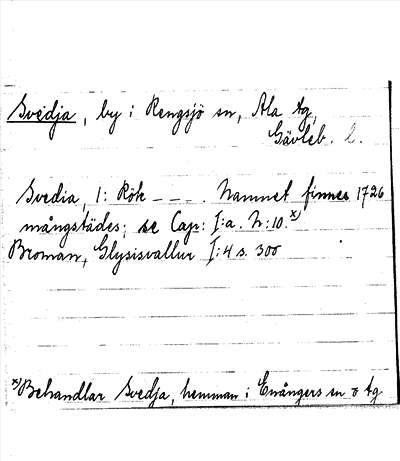 Svedja, by i Rengsjö sn, Ala tg,
Gävleb. l.
Svedia, 1: Rök _ _ _ . Namnet finnes 1726
mångstädes; se Cap: I:a. N:10.x)
Broman, Glysisvallur I:4 s. 300
x) Behandlar Svedja, hemman i Enångers sn o tg